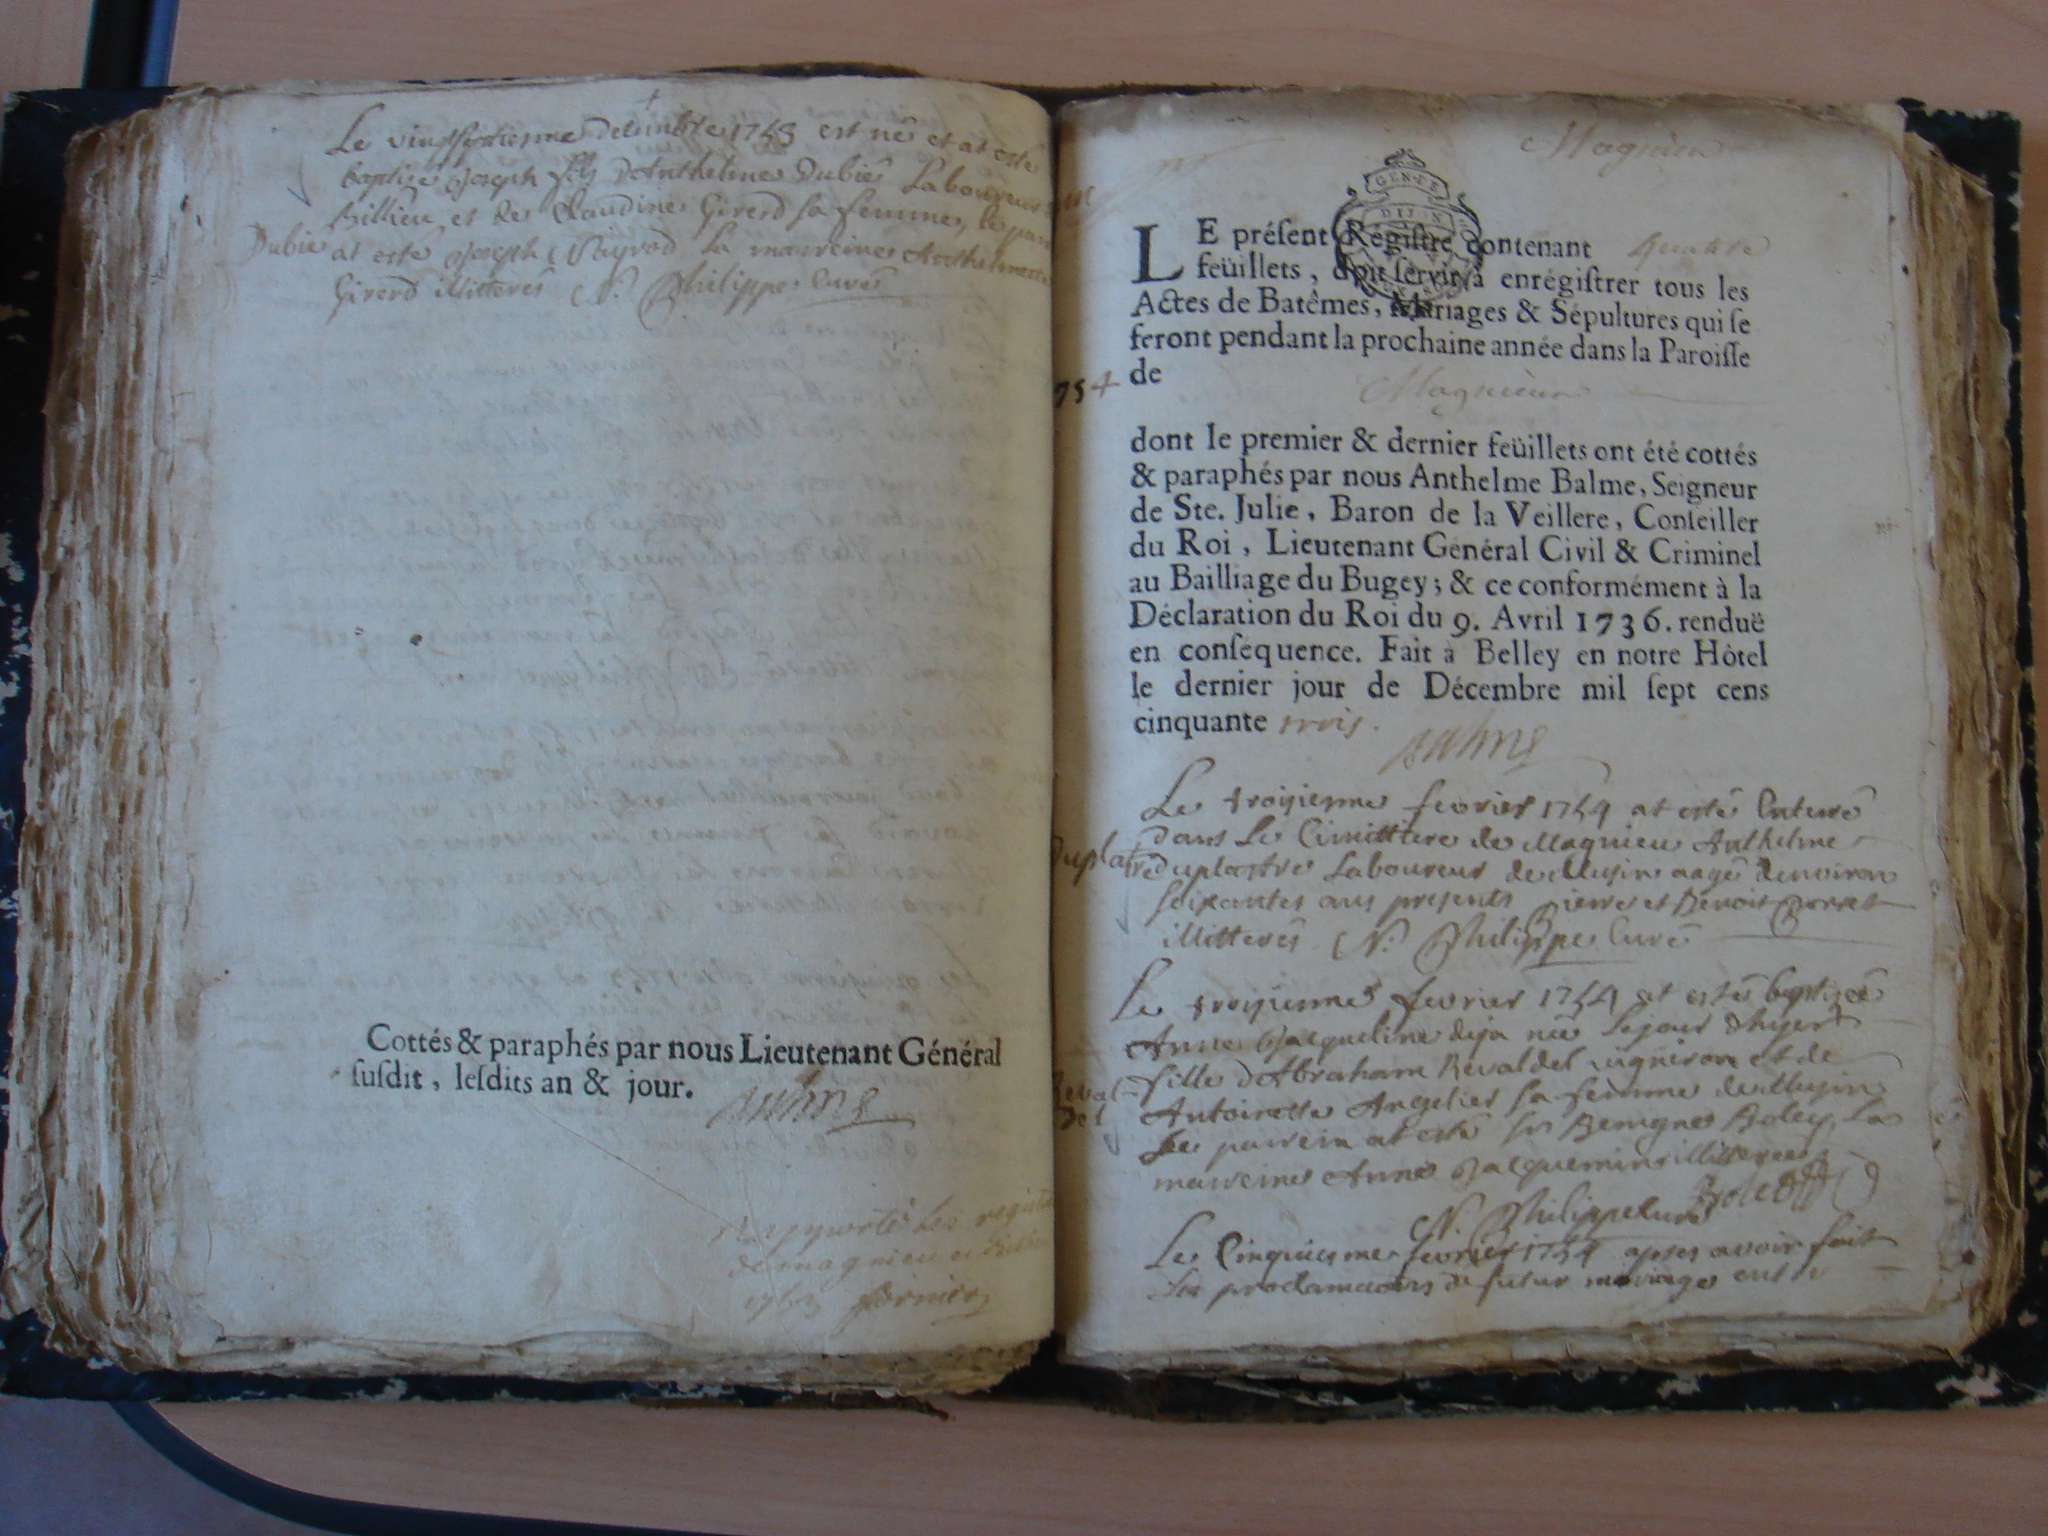 Le vingtseptiemme decembre 1753 est né et at esté
baptisé Joseph fils d'Anthelme Dubié Laboureur
Billieu et de Claudine Girerd sa femme, le par
Dubie
at esté Joseph la marreine Anthelme
Girerd illitterés N. Philippe Curé
Cottés & paraphés par nous Lieutenant Général
ſuſdit, leſdits an & jour.
Balme
Rapporté les regist
de magnieu
Magnieu
GENER
DIJON
LE préſent Regiſtre contenant quatre
feüillets, doit ſervir à enrégiſtrer tous les
Actes de Batêmes, Mariages & Sépultures qui ſe
feront pendant la prochaine année dans la Paroiſſe
de Magnieu
754
dont le premier & dernier feüillets ont été cottés
& paraphés par nous Anthelme Balme, Seigneur
de Ste. Julie, Baron de la Veillere, Conſeiller
du Roi, Lieutenant Général Civil & Criminel
au Bailliage du Bugey; & ce conformément à la
Déclaration du Roi du 9. Avril 1736. renduë
en conſéquence. Fait à Belley en notre Hôtel
le dernier jour de Décembre mil ſept cens
cinquante trois.
Balme
Le troisiemme fevrier 1754 at esté Enterré
dans Le Cimittiere de Magnieu Anthelme
Duplatre
duplastre Laboureur de Musin aagé denviron
soixantes ans presents pierre et Benoit
illitterés N. Philippe Curé
Le troisiemme fevrier 1754 at estés baptizée
Anne Jacqueline deja née le jour d'hyert
fille d'Abraham Revaldel vigniron et de
Reval-
del
Antoinette Angelier sa femme de Musin
Le parrein at esté Sr Benigne Boley, La
marreine Anne Jacquemin illitterée
N. Philippe Curé
Le Cinquiesme fevrier 1754 apres avoir fait
les proclamations de futur mariage entre